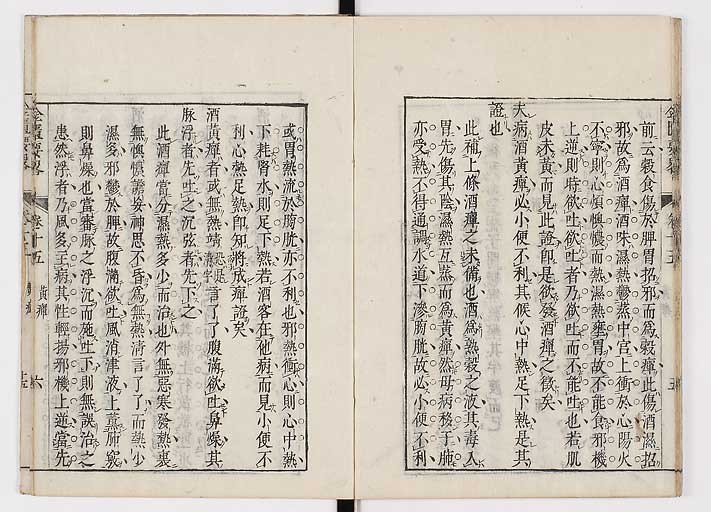 前云穀食傷於脾胃招邪而為穀癉此傷酒濕招
邪故為酒癉酒味濕熱鬱蒸中宮上衝於心陽火
不寧則心煩懊憹而熱濕熱壅胃故不能食邪機
上逆則時欲吐欲吐者乃欲吐而不能吐也若肌
皮未黃而見此證卽是欲發酒癉之徵矣
夫病酒黃癉必小便不利其候心中熱足下熱是其
證也
此補上條酒癉之未備也酒為熱穀之液其毒入
胃先傷其陰濕熱互蒸而為黃癉然母病移于肺
亦受熱不得通調水道下滲膀胱故必小便不利
或胃熱流於膀胱亦不利也邪熱衝心則心中熱
下耗腎水則足下熱若酒客在他病而見小便不
利心熱足熱卽知將成癉證矣
酒黃癉者或無熱靖言了了腹滿欲吐鼻燥其
脉浮者先吐之沉弦者先下之
此酒癉當分濕熱多少而治也外無惡寒發熱裏
無懊憹譫妄神思不昏為無熱清言了了而熱少
濕多邪鬱於脾故腹滿欲吐風消津液上薰肺竅
則鼻燥也當審脉之浮沉而施吐下則無誤治之
患然浮者乃風多主病其性輕揚邪機上逆當先
金匱要畧
卷十五
黃癉
六
五